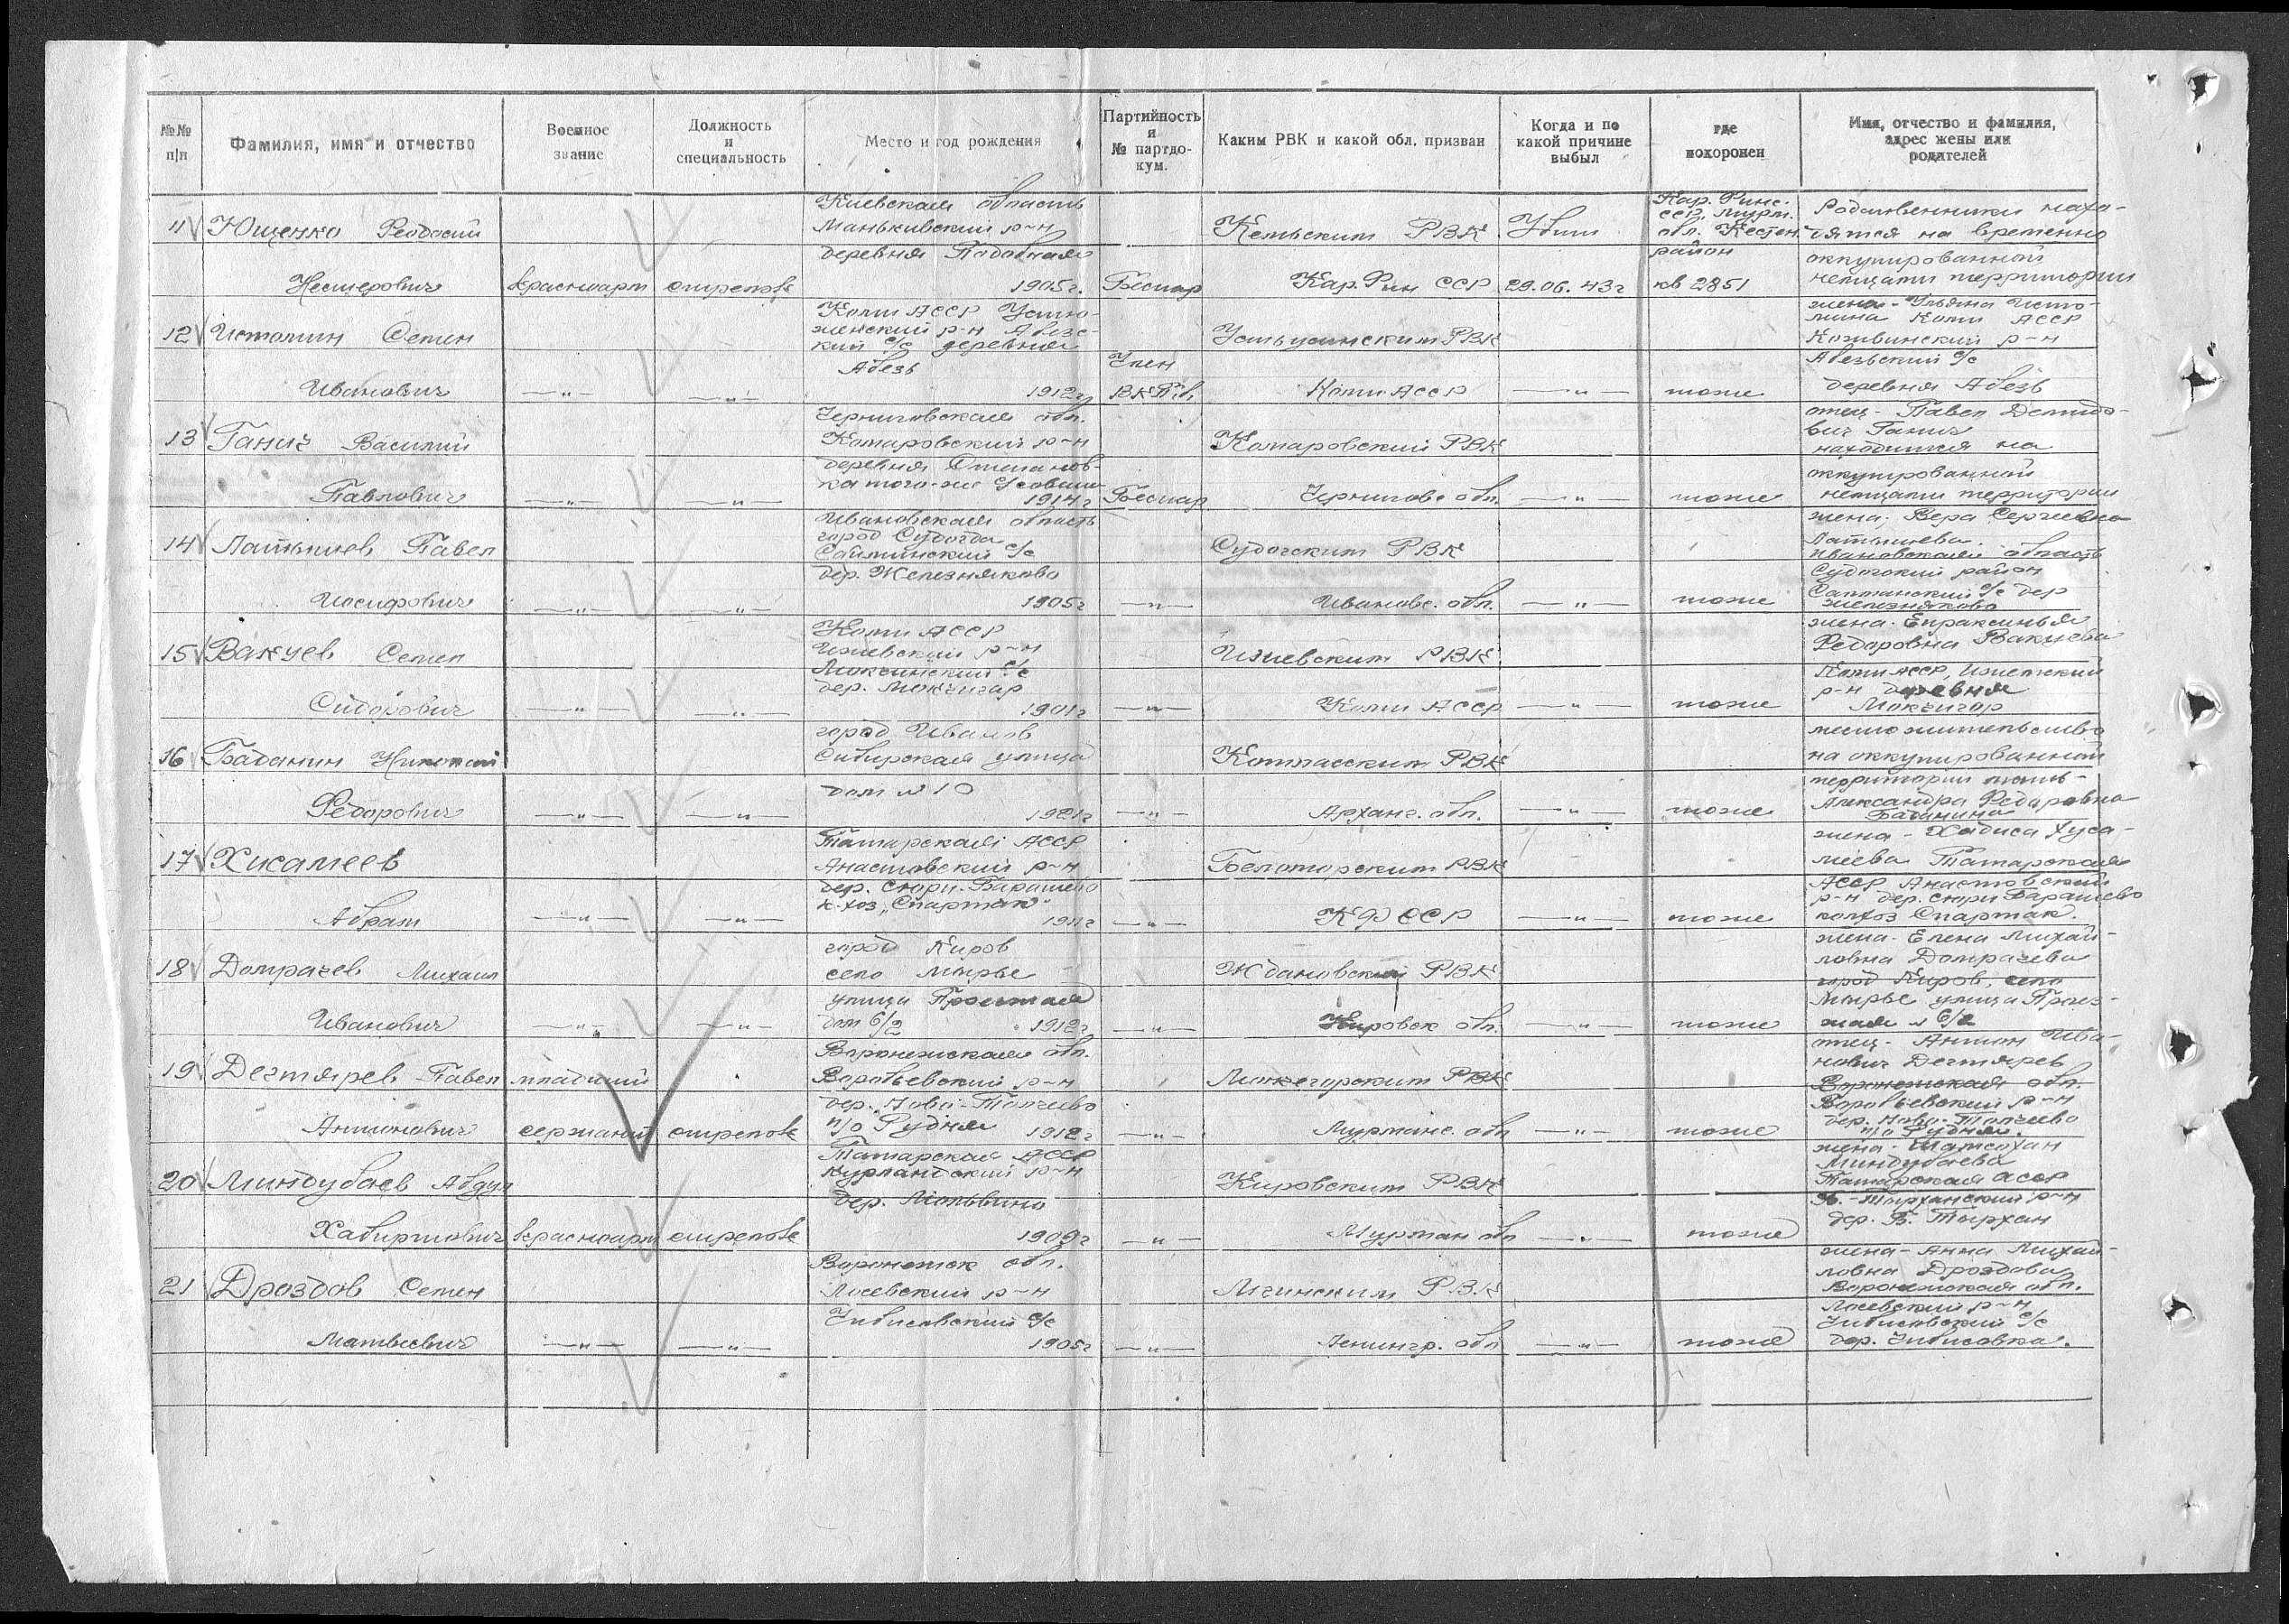 №№ п/п
Фамилия, имя и отчество
Военное звание
Должность и специальность
Место и год рождения
Партийность и № партдокум.
Каким РВК и какой обл. призван
Когда и по какой причине выбыл
где похоронен
Имя, отчество и фамилия, адрес жены или родителей
11 Ющенко Феодосий
Нестерович
красноарм
стрелок
Киевская область
Маньковский р-н
деревня
1905г.
Беспар
Кемьским РВК
Кар. Фин ССР
Убит
29.06.43г
Кар. Финс.
ССР, Мурм.
обл. Кестен.
район
кв 2851
Родственники нахо-
дятся на временно
оккупированной
немцами территории
12 Истомин Семен
Иванович
—„—
—„—
Коми АССР
р-н Абезс-
кий с/с деревня
Абезь
1912г
Член
ВКП(б)
Устьусинским РВК
Коми АССР
—„—
тоже
жена - Ульяна Исто-
мина Коми АССР
Кожвинский р-н
Абезьский с/с
деревня Абезь
13 Ганич Василий
Павлович
—„—
—„—
Черниговская обл.
Комаровский р-н
деревня Степанов-
ка того-же с/совета
1914г
Беспар
Комаровский РВК
Чернигов обл.
—„—
тоже
отец - Павел Демидо-
вич Ганич
находится на
оккупированной
немцами территории
14 Латышев Павел
Иосифович
—„—
—„—
Ивановская область
город Судогда
с/с
дер. Железняково
1905г
—„—
Судогским РВК
Ивановс. обл.
—„—
тоже
жена: Вера Сергеевна
Латышева.
Ивановская область
Судогский район
с/с дер
Железняково
15 Вакуев Семен
Сидорович
—„—
—„—
Коми АССР
Ижевский р-н
с/с
дер.
1901г
—„—
Ижевским РВК
Коми АССР
—„—
тоже
жена. Епраксинья
Федоровна Вакуева
Коми АССР, Ижемский
р-н деревня
16 Баданин Николай
Федорович
—„—
—„—
город
Сибирская улица
дом №10
1921г
Котласским РВК
Арханг. обл.
—„—
тоже
место жительство
на оккупированной
территории мать-
Александра Федоровна
Баданина
17 Хисамеев
Абрам
—„—
—„—
Татарская АССР
Анастовский р-н
дер. Сюри-Барашево
к-хоз „Спартак“
1911г
—„—
Беломорским РВК
КФССР
—„—
тоже
жена - Хадиса Хуса-
меева Татарская
АССР Анастовский
р-н дер. Сюри Барашево
колхоз Спартак.
18 Домрачев Михаил
Иванович
—„—
—„—
город Киров
село
улица
дом 6/2
1912г
—„—
Ждановский РВК
Кировск обл.
—„—
тоже
жена - Елена Михай-
ловна Домрачева
город Киров, село
улица
№ 6/2
19 Дегтярев Павел
Антонович
младший
сержант
стрелок
Воронежская обл.
Воробьевский р-н
дер. Ново-Толучеево
п/о Рудня
1912г
—„—
Мончегорским РВК
Мурманс. обл
—„—
тоже
отец - Антон Ива-
нович Дегтярев
Воронежская обл.
Воробьевский р-н
дер. Ново-
по Рудня.
20 Миндубаев Авдул
красноарм
стрелок
Татарская АССР
р-н
дер.
1909г
—„—
Кировским РВК
Мурман обл
—„—
тоже
жена -
Миндубаева
Татарская АССР
р-н
дер. Б. Тырхан
21 Дроздов Семен
Матвеевич
—„—
—„—
Воронежск обл.
Лосевский р-н
Чибисовский с/с
1905г
—„—
Мгинским РВК
Ленингр. обл
—„—
тоже
жена - Анна Михай-
ловна Дроздова
Воронежская обл.
Лосевский р-н
Чибисовский с/с
дер. Чибисовка.